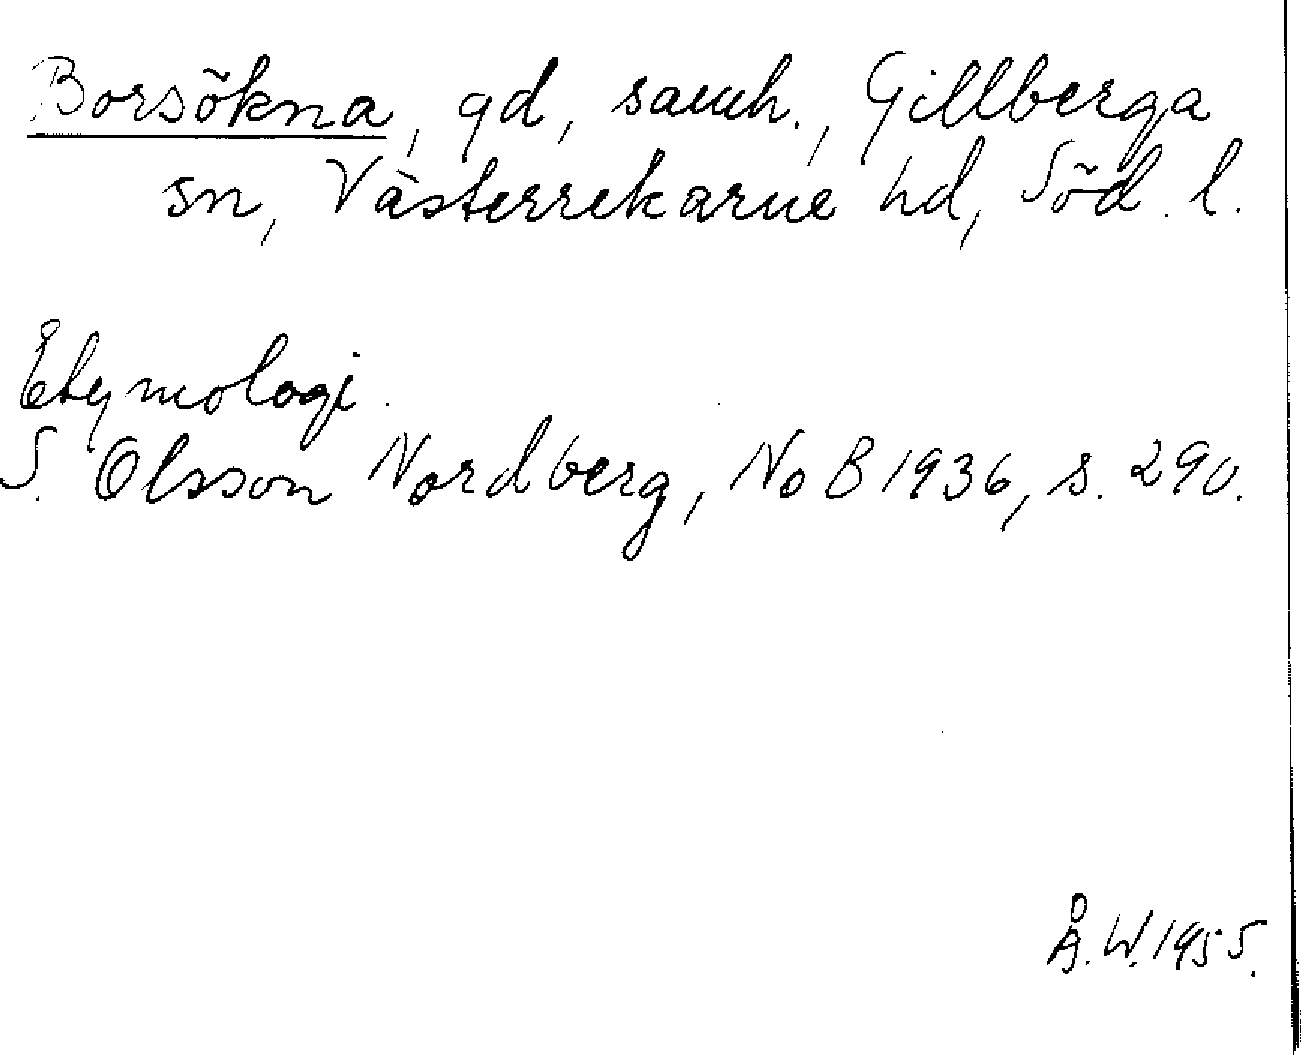 Borsökna, gd, samh., Gillberga
sn, Västerrekarne hd, Söd. l.
Etymologi.
S. Olsson Nordberg, NoB 1936, s. 290.
Å. W. 1955.